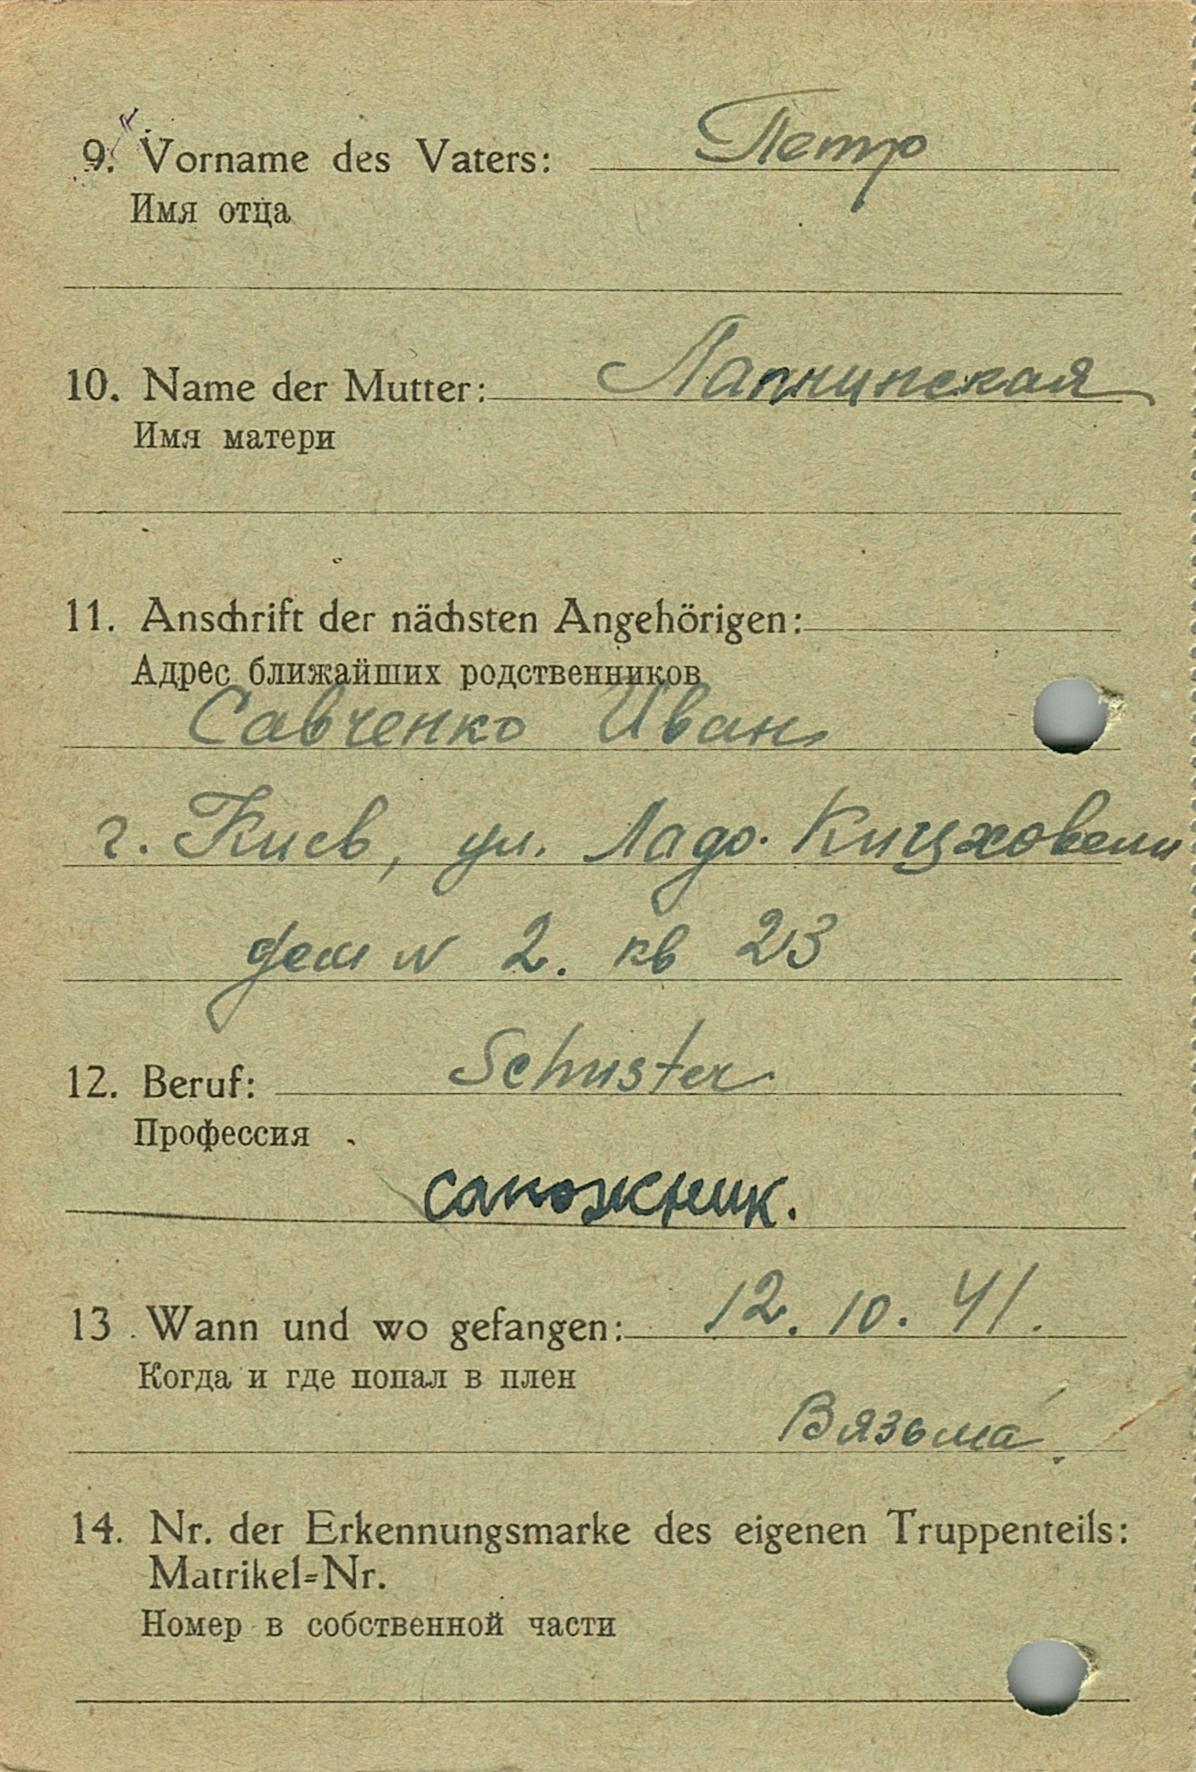 9. Vorname des Vaters: Петр
Имя отца
10. Name der Mutter: Лапчинская
Имя матери
11. Anschrift der nächsten Angehörigen:
Адрес ближайших родственников
Савченко Иван
г. Киев, ул. Ладо Кицховели
дом N 2. кв 23
12. Beruf: Schuster
Профессия
сапожник.
13. Wann und wo gefangen: 12. 10. 41.
Когда и где попал в плен
Вязьма.
14. Nr. der Erkennungsmarke des eigenen Truppenteils:
Matrikel=Nr.
Номер в собственной части